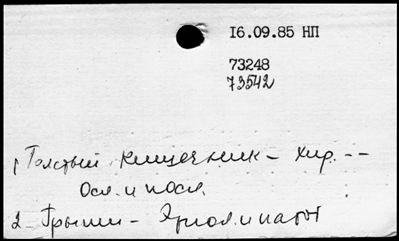 16.09.85 НП
73248
73542
1 Толстый кишечник – хир. --
Осл. и посл.
2 – Грыжи – Этиол. и пат